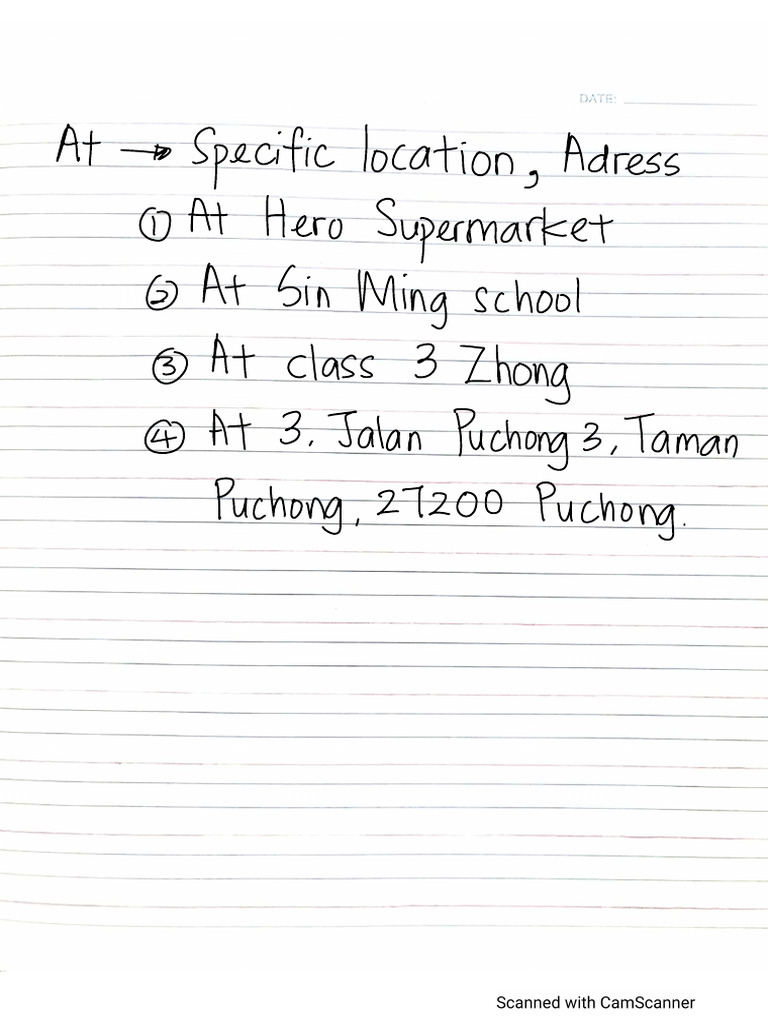 DATE:
At → Specific location, Adress
① At Hero Supermarket
② At Sin Ming school
③ At class 3 Zhong
④ At 3, Jalan Puchong 3, Taman
Puchong, 27200 Puchong.
Scanned with CamScanner